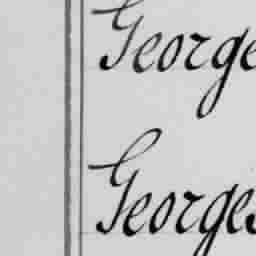 George
Georges